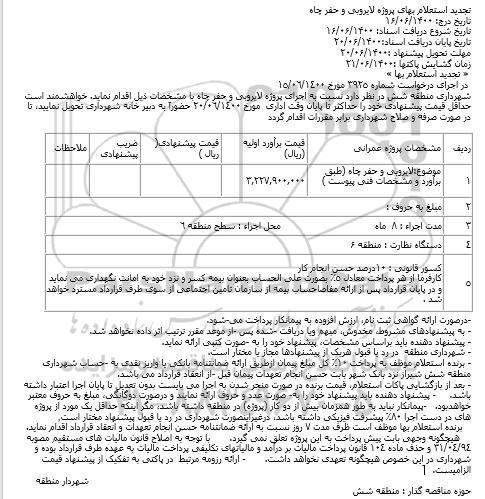 تجدید استعلام بهای پروژه لایروبی و حفر چاه
تاریخ درج: ۱۴۰۰/۰۶/۱۶
تاریخ شروع دریافت اسناد: ۱۴۰۰/۰۶/۱۶
تاریخ پایان دریافت اسناد:۱۴۰۰/۰۶/۲۰
مهلت تحویل پیشنهاد :۱۴۰۰/۰۶/۲۰
زمان گشایش پاکتها :۱۴۰۰/۰۶/۲۱
« تجدید استعلام بها »
در اجرای درخواست شماره ۳۹۲۵ مورخ ۱۵/۰۶/۱٤۰۰
شهرداری منطقه شش در نظر دارد نسبت به اجرای پروژه لایروبی و حفر چاه با مشخصات ذیل اقدام نماید. خواهشمند است
حداقل قیمت پیشنهادی خود را حداکثر تا پایان وقت اداری مورخ ۲۰/۰۶/۱٤۰۰ حضوراً به دبیر خانه شهرداری تحویل نمایید، تا
در صورت صرفه و صلاح شهرداری برابر مقررات اقدام گردد
ردیف مشخصات پروژه عمرانی قیمت برآورد اولیه (ریال) قیمت پیشنهادی( ریال ) ضریب پیشنهادی ملاحظات
۱ موضوع:لایروبی و حفر چاه (طبق برآورد و مشخصات فنی پیوست ) ۳,۲۲۷,۹۰۰,۰۰۰
۲ مبلغ به حروف :
۳ مدت اجراء : ۸ ماه محل اجراء : سطح منطقه ٦
٤ دستگاه نظارت : منطقه ۶
۵ کسور قانونی : ۱۰درصد حسن انجام کار
کارفرما از هر پرداخت معادل ۵٪ بصورت علی الحساب بعنوان بیمه کسر و نزد خود به امانت نگهداری می نماید
و در پایان قرارداد پس از ارائه مفاصاحساب بیمه از سازمان تامین اجتماعی از سوی طرف قرارداد مسترد خواهد
شد .
-درصورت ارائه گواهی ثبت نام، ارزش افزوده به پیمانکار پرداخت می-شود.
- به پیشنهادهای مشروط، مخدوش، مبهم ویا دریافت -شده پس -از موعد مقرر ترتیب اثر داده نخواهد شد.
- پیشنهاد دهنده باید براساس مشخصات، پیشنهاد خود را به -صورت کتبی ارائه نماید.
- شهرداری منطقه در رد یا قبول هریک از پیشنهادها مجاز یا مختار است.
- برنده استعلام موظف به پرداخت ۱۰٪ کل مبلغ پیمان ازطریق ارائه ضمانتنامه بانکی یا واریز نقدی به -حساب شهرداری
منطقه شش شیراز نزد بانک شهر بابت حسن انجام تعهدات پیمان قبل -از انعقاد قرارداد می باشد.
- بعد از بازگشایی پاکات استعلام، قیمت برنده در صورت منجر شدن به اجرا می بایست بدون تعدیل تا پایان اجرا اعتبار داشته
باشد. - پیشنهاد دهنده باید پیشنهاد خود را به- صورت عدد و حروف ارائه نمایند و درصورت دوگانگی، مبلغ به حروف معتبر
خواهدبود. -پیمانکار نباید به طور همزمان بیش از دو کار (پروژه) در منطقه داشته باشد، مگر اینکه حداقل یک مورد از پروژه
های در دست اجرا ۸۰٪ پیشرفت فیزیکی داشته باشد. درغیراینصورت شهرداری در رد یا قبول پیشنهاد مختار است.
برنده استعلام بها موظف است ظرف مدت ۷ روز نسبت به ارائه ضمانتنامه حسن انجام تعهدات و انعقاد قرارداد اقدام نماید.
هیچگونه وجهی بابت پیش پرداخت به این پروژه تعلق نمی گیرد. - با توجه به اصلاح قانون مالیات های مستقیم مصوبه
۳۱/۰٤/۹٤ و حذف ماده ۱۰٤ قانون پرداخت مالیات بر درآمد و مالیاتهای تکلیفی پرداخت مالیات به عهده طرف قرارداد بوده و
شهرداری در این خصوص هیچگونه تعهدی نخواهد داشت. - ارائه رزومه مرتبط در پاکتی به تفکیک از پیشنهاد قیمت
الزامیست.
شهردار منطقه
حوزه مناقصه گذار : منطقه شش